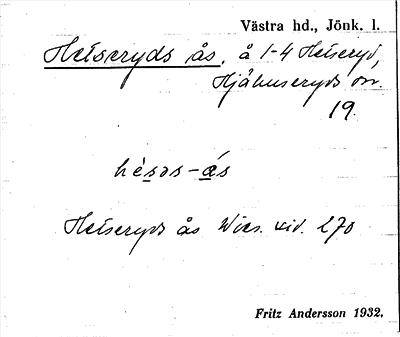 Västra hd., Jönk. l.
Hetseryds ås, å 1-4 Hetseryd,
Hjälmseryds sn.
19.
hèsәs-ás
Hetseryds ås Wies. 270
Fritz Andersson 1932.